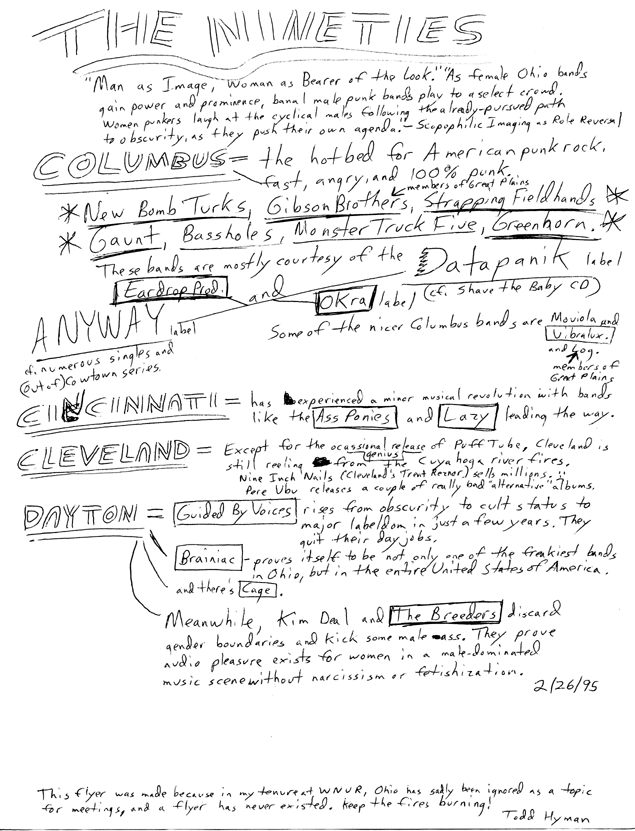 THE NINETIES
"Man as Image, Woman as Bearer of the Look." "As female Ohio bands
gain power and prominence, banal male punk bands play to a select crowd.
Women punkers laugh at the cyclical males following the already-pursued path
to obscurity, as they push their own agenda. - Scopophilic Imaging as Role Reversal
COLUMBUS = the hotbed for American punk rock,
fast, angry, and 100% punk.
members of Great Plains
* New Bomb Turks, Gibson Brothers, Strapping Fieldhands *
* Gaunt, Bassholes, Monster Truck Five, Greenhorn. *
These bands are mostly courtesy of the Datapanik label
(cf. Shave the Baby CD)
Eardrop Prod. and OKra label
ANYWAY label
cf. numerous singles and
(out of) Cowtown series.
Some of the nicer Columbus bands are Moviola and
Vibralux.
and Log.
members of
Great Plains
CINCINNATI = has experienced a minor musical revolution with bands
like the Ass Ponies and Lazy leading the way.
CLEVELAND = Except for the ocassional release of Puff Tube, Cleveland is
still reeling from the Cuyahoga river fires.
genius
Nine Inch Nails (Cleveland's Trent Reznor) sells millions...
Pere Ubu releases a couple of really bad "alternative" albums.
DAYTON = Guided By Voices rises from obscurity to cult status to
major labeldom in just a few years. They
quit their day jobs.
Brainiac - proves itself to be not only one of the freakiest bands
in Ohio, but in the entire United States of America.
and there's Cage.
Meanwhile, Kim Deal and The Breeders discard
gender boundaries and kick some male ass. They prove
audio pleasure exists for women in a male-dominated
music scene without narcissism or fetishization.
2/26/95
This flyer was made because in my tenure at WNUR, Ohio has sadly been ignored as a topic
for meetings, and a flyer has never existed. Keep the fires burning!
Todd Hyman